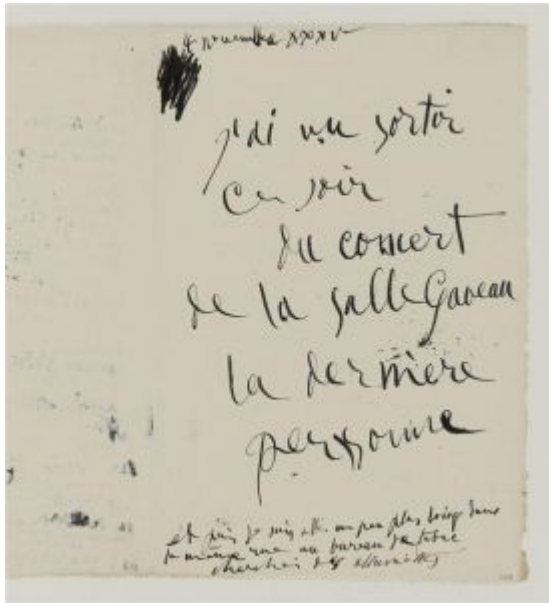 4 novembre XXXV
j'ai vu sortir
ce soir
du concert
de la salle Gaveau
la dernière
personne
et puis je suis allé un peu plus loing dans
la même rue au bureau de tabac
chercher des allumettes